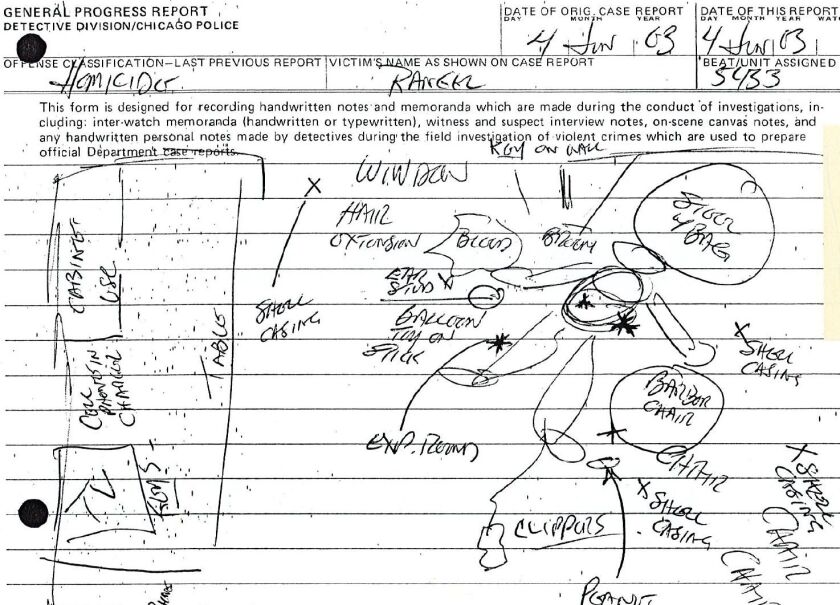 GENERAL PROGRESS REPORT
DETECTIVE DIVISION/CHICAGO POLICE
DATE OF ORIG. CASE REPORT
DAY MONTH YEAR
4 Jun 03
DATE OF THIS REPORT
DAY MONTH YEAR
4 Jun 03
OFFENSE CLASSIFICATION—LAST PREVIOUS REPORT
HOMICIDE
VICTIM'S NAME AS SHOWN ON CASE REPORT
RANGEL
BEAT/UNIT ASSIGNED
5433
This form is designed for recording handwritten notes and memoranda which are made during the conduct of investigations, in-
cluding: inter-watch memoranda (handwritten or typewritten), witness and suspect interview notes, on-scene canvas notes, and
any handwritten personal notes made by detectives during the field investigation of violent crimes which are used to prepare
official Department case reports.
KEY ON WALL
X
WINDOW
HAIR
EXTENSION
BLOOD
BROOM
CABINET
TABLE
SHELL
CASING
EAR
STUD
X
BALLOON
TOY ON
STICK
X
SHELL
CASING
CELL
PHONES IN
CHARGER
BARBER
CHAIR
EXP. ROUND
CHAIR
X
SHELL
CASING
X
SHELL
CASING
CHAIR
CHAIR
CLIPPERS